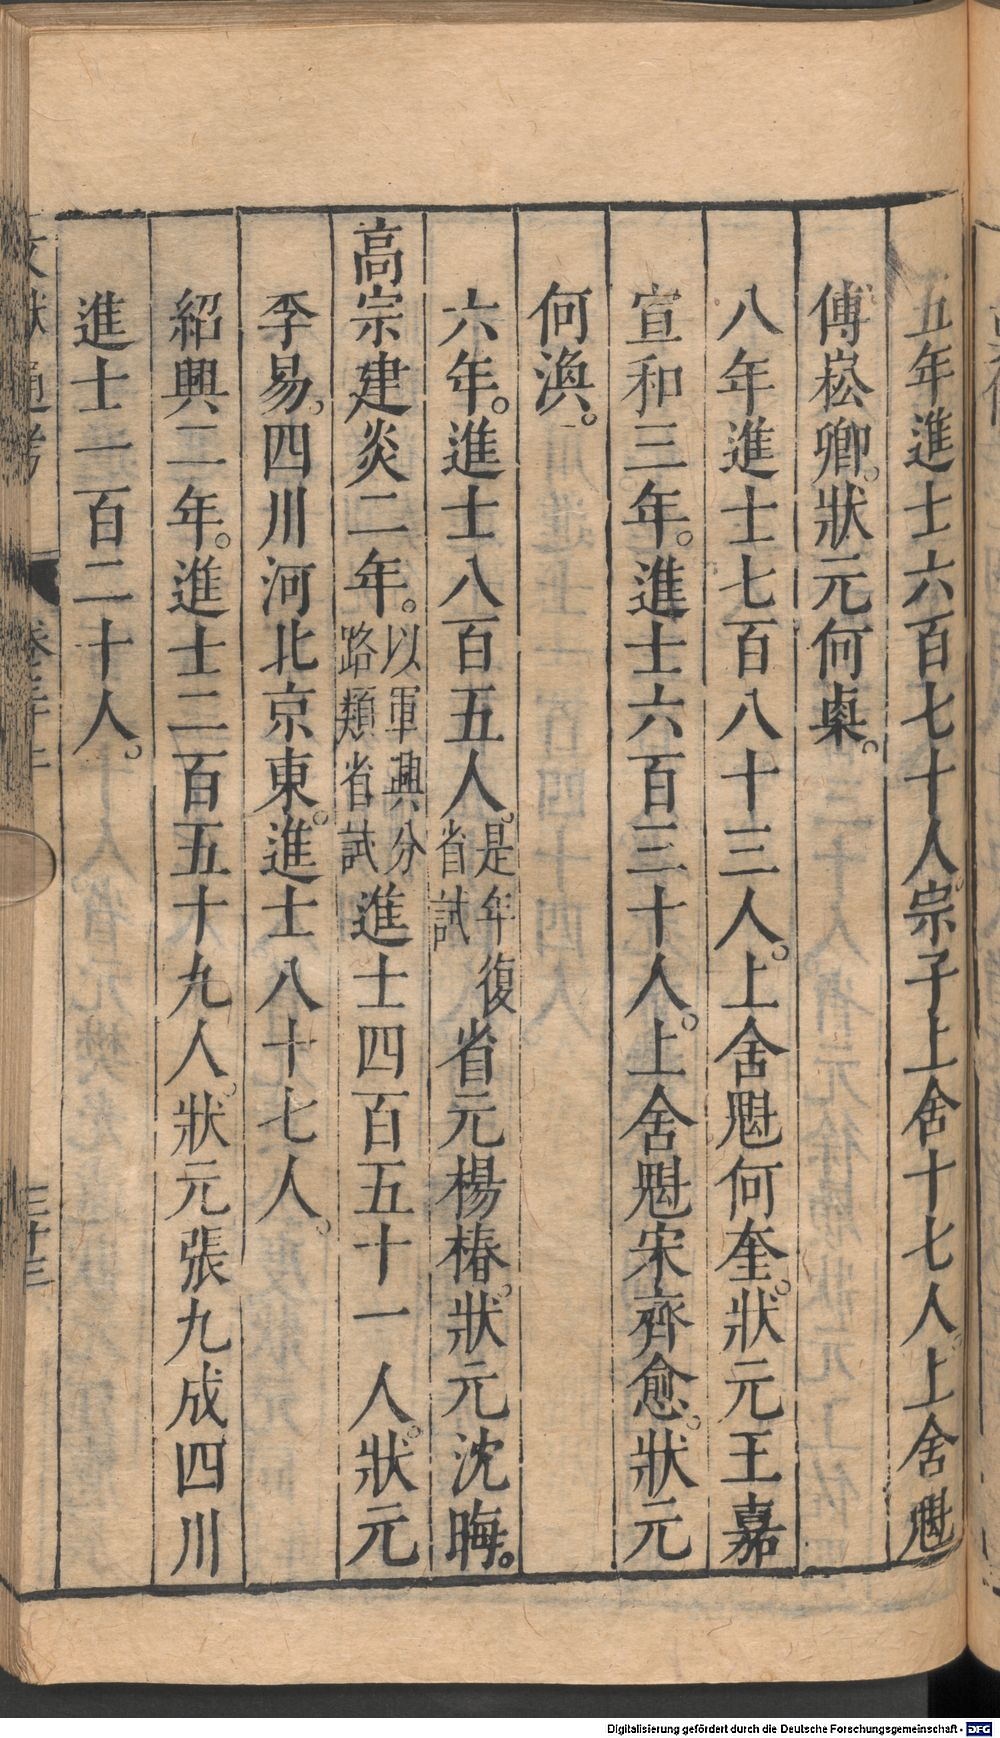 五年進士六百七十人。宗子上舍十七人。上舍魁
傅崧卿。狀元何㮚。
八年進士七百八十三人。上舍魁何奎。狀元王嘉
宣和三年。進士六百三十人。上舍魁宋齊愈。狀元
何渙。
六年。進士八百五人。是年復省試省元楊椿。狀元沈晦。
高宗建炎二年。以軍興分路類省試進士四百五十一人。狀元
李易。四川河北京東。進士八十七人。
紹興二年。進士二百五十九人。狀元張九成四川
進士一百二十人。
文獻通考
Digitalisierung gefördert durch die Deutsche Forschungsgemeinschaft - DFG